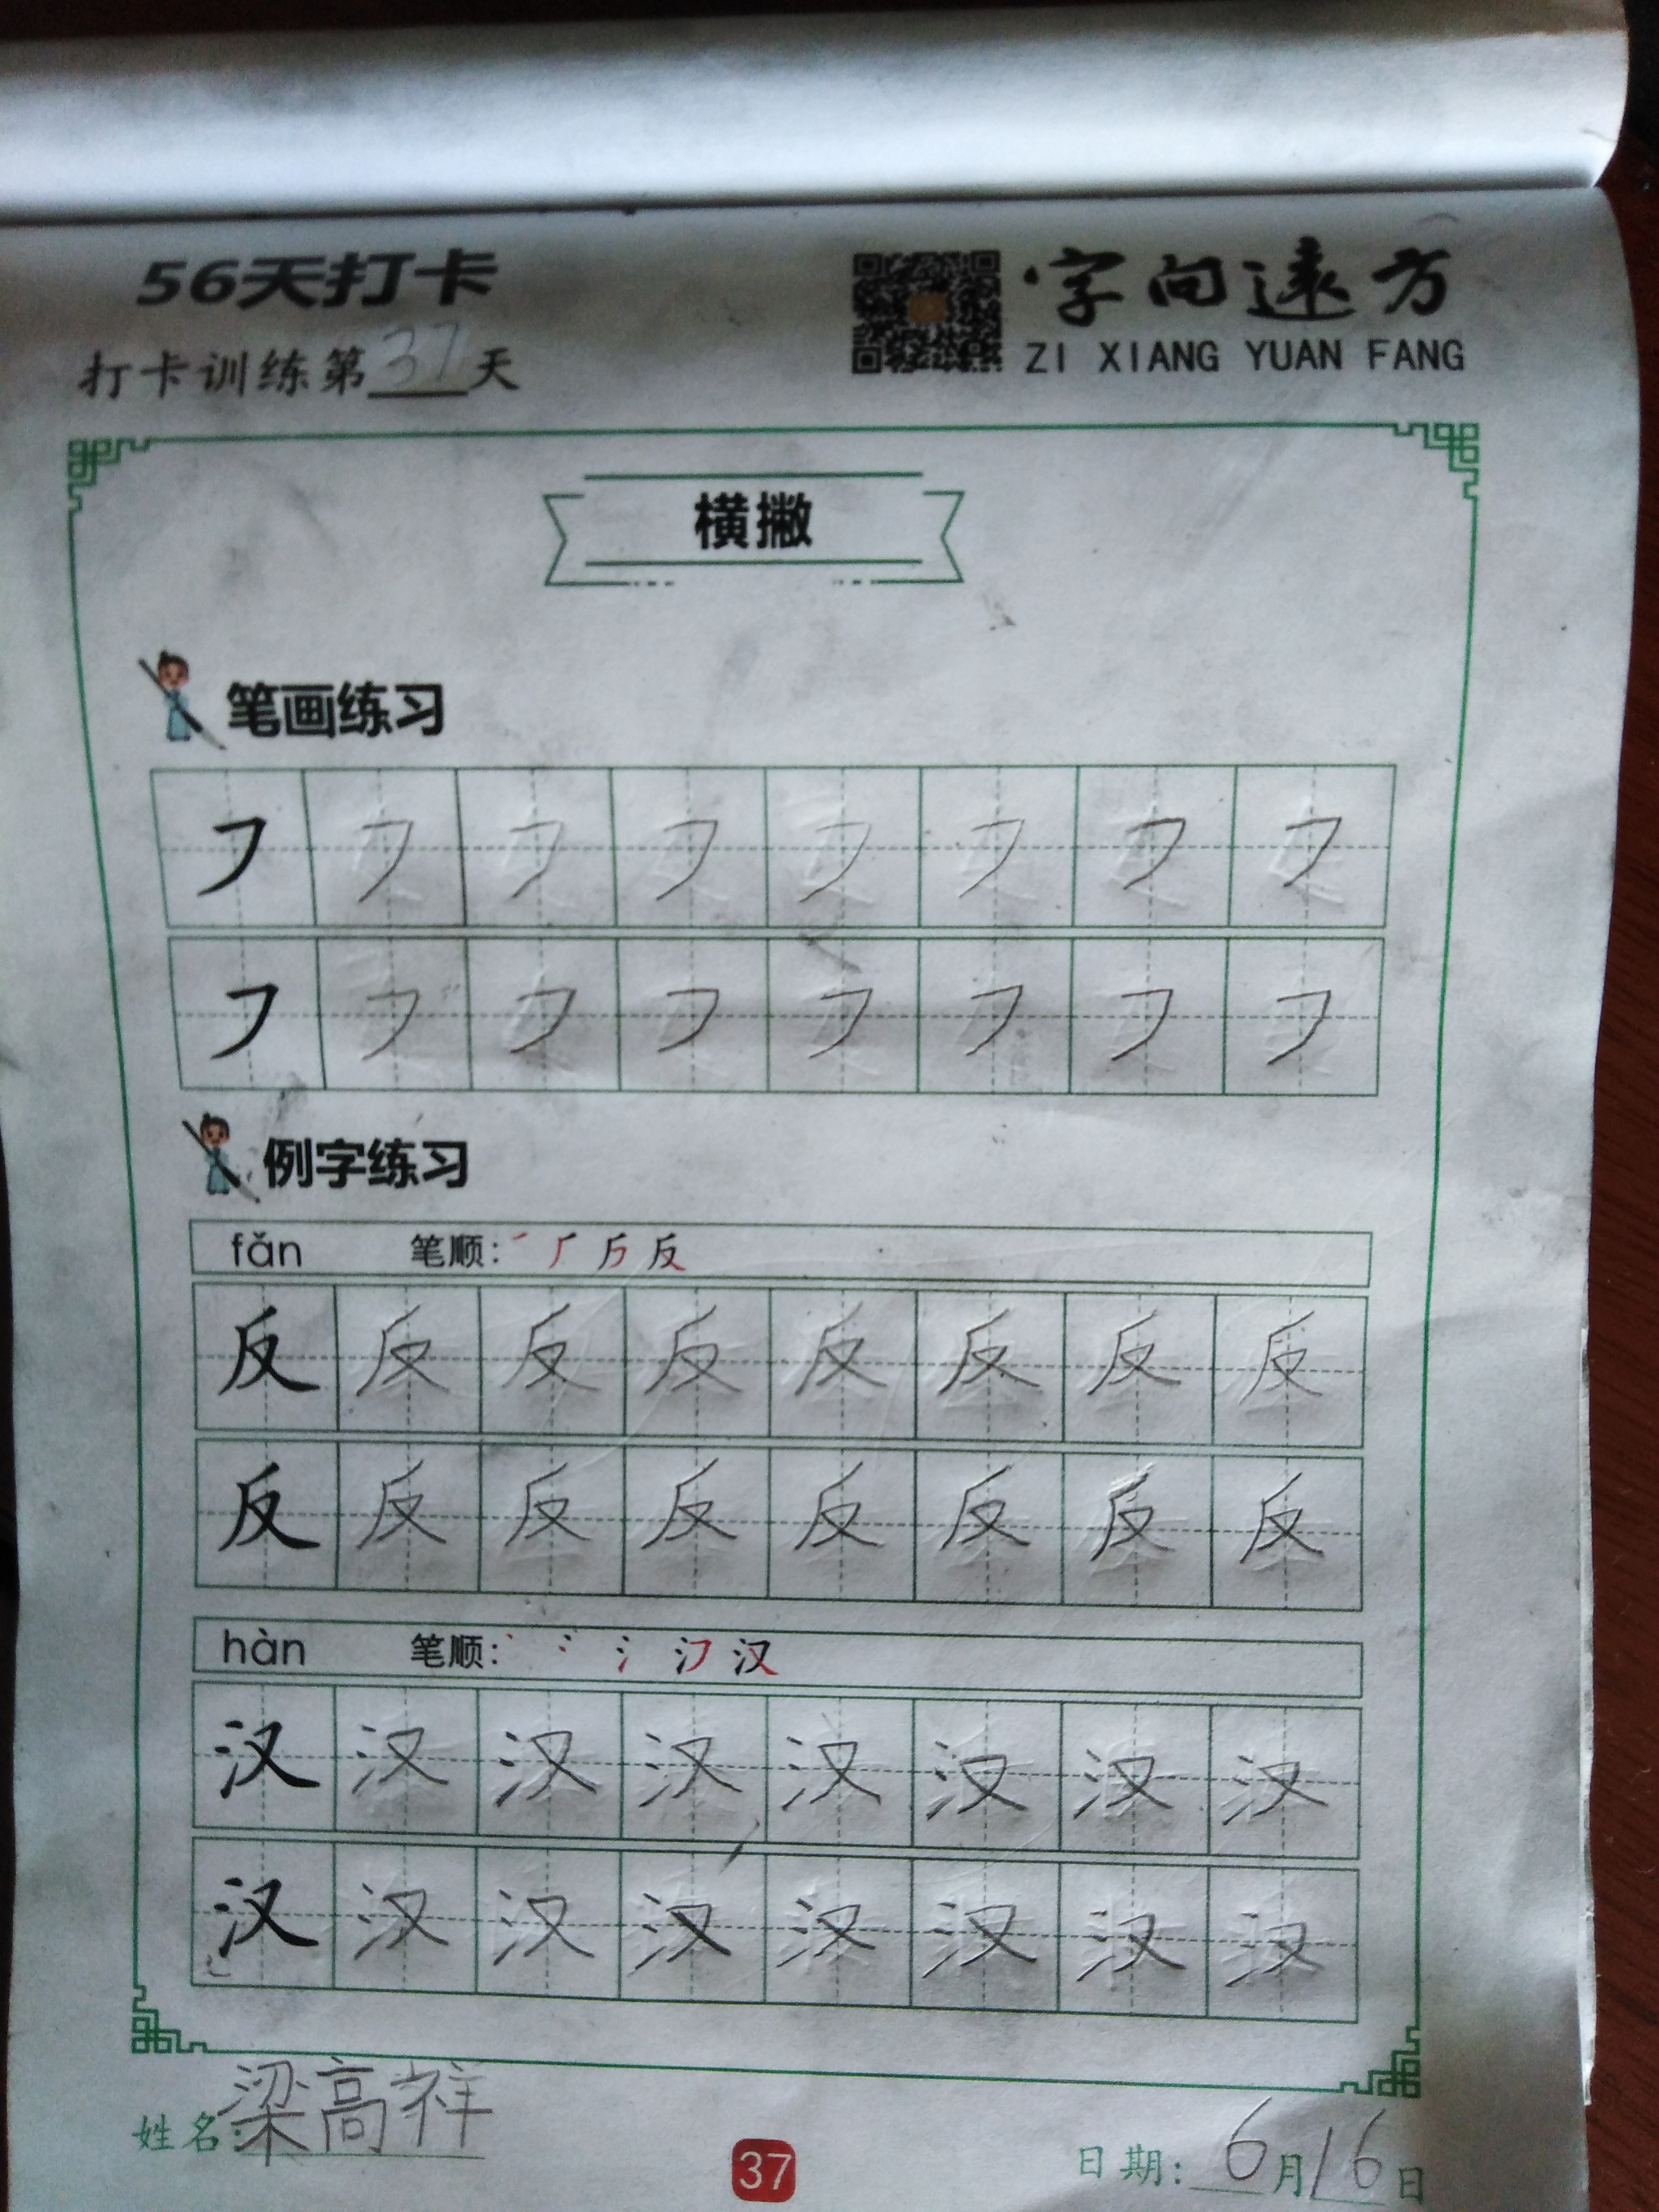 56天打卡
字向远方
打卡训练第37天
ZI XIANG YUAN FANG
横撇
笔画练习
㇇ ㇇ ㇇ ㇇ ㇇ ㇇ ㇇ ㇇
㇇ ㇇ ㇇ ㇇ ㇇ ㇇ ㇇ ㇇
例字练习
fǎn 笔顺: 反
反 反 反 反 反 反 反 反
反 反 反 反 反 反 反 反
hàn 笔顺: 汉
汉 汉 汉 汉 汉 汉 汉 汉
汉 汉 汉 汉 汉 汉 汉 汉
姓名:梁高祥
37
日期: 6月16日